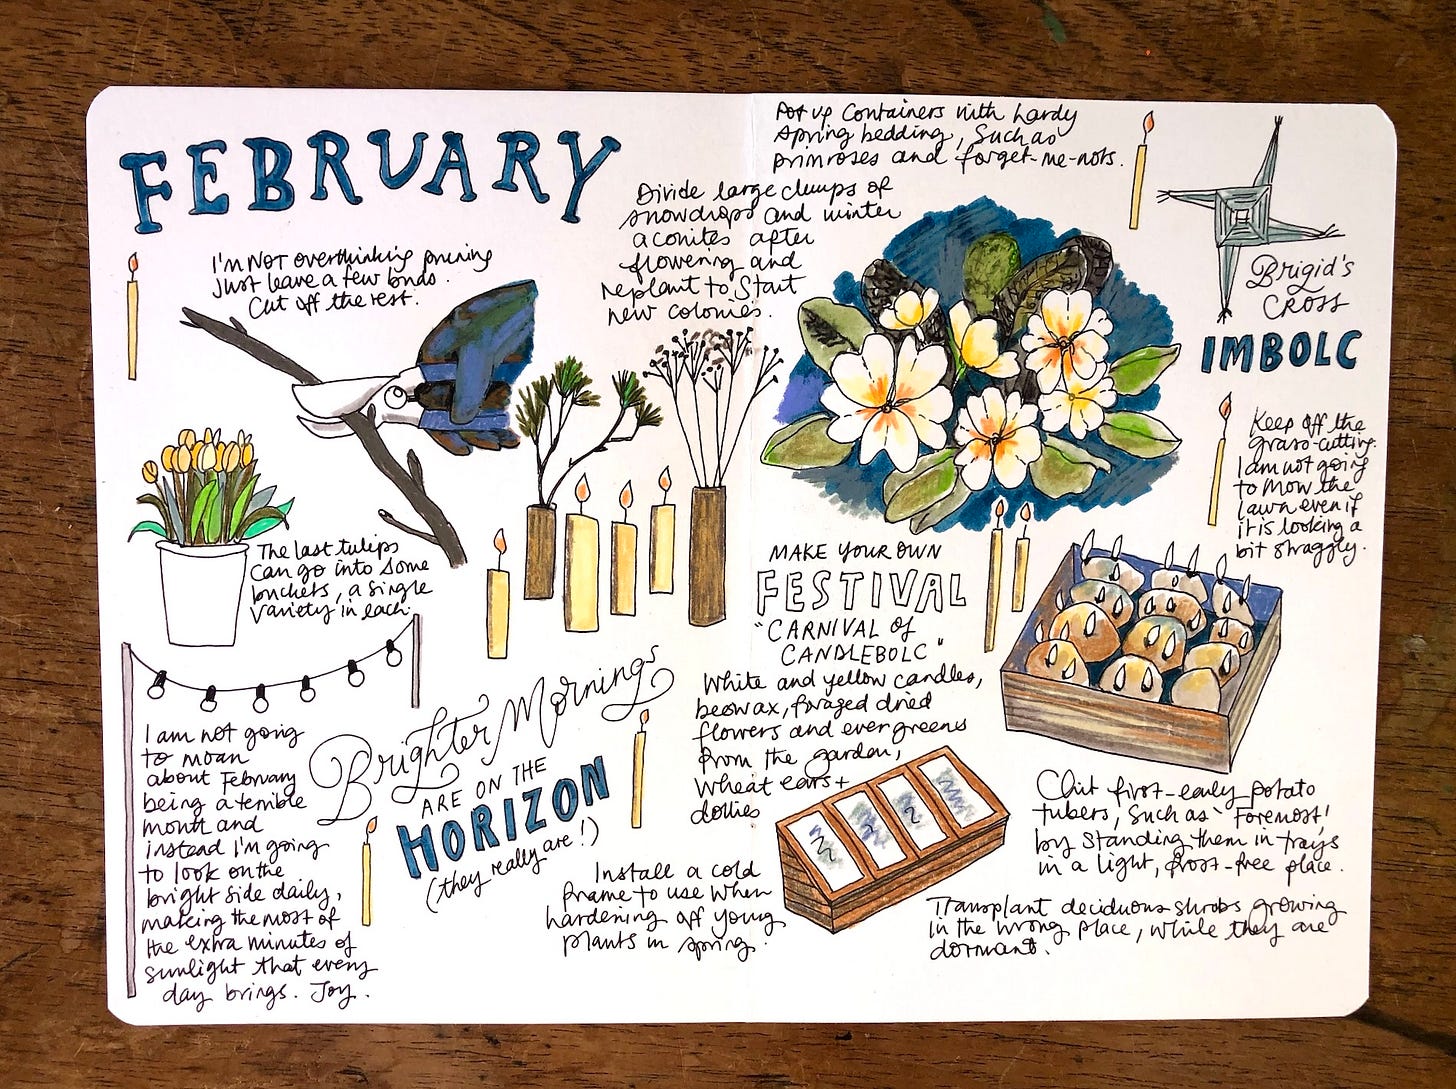 FEBRUARY
I'm NOT overthinking pruning
just leave a few buds.
Cut off the rest.
The last tulips
can go into some
buckets, a single
variety in each.
I am not going
to moan
about February
being a terrible
month and
instead I'm going
to look on the
bright side daily,
making the most of
the extra minutes of
sunlight that every
day brings. Joy.
Brighter Mornings
ARE ON THE
HORIZON
(they really are!)
Divide large clumps of
snowdrops and winter
aconites after
flowering and
replant to start
new colonies.
Pot up containers with hardy
spring bedding, such as
primroses and forget-me-nots.
Brigid's
CROSS
IMBOLC
Keep off the
grass-cutting.
I am not going
to mow the
lawn even if
it is looking a
bit straggly.
MAKE YOUR OWN
FESTIVAL
"CARNIVAL of
CANDLEBOLC"
White and yellow candles,
beeswax, foraged dried
flowers and evergreens
from the garden,
wheat ears +
dollies
Install a cold
frame to use when
hardening off young
plants in spring.
Chit first-early potato
tubers, such as 'Foremost',
by standing them in trays
in a light, frost-free place.
Transplant deciduous shrubs growing
in the wrong place, while they are
dormant.